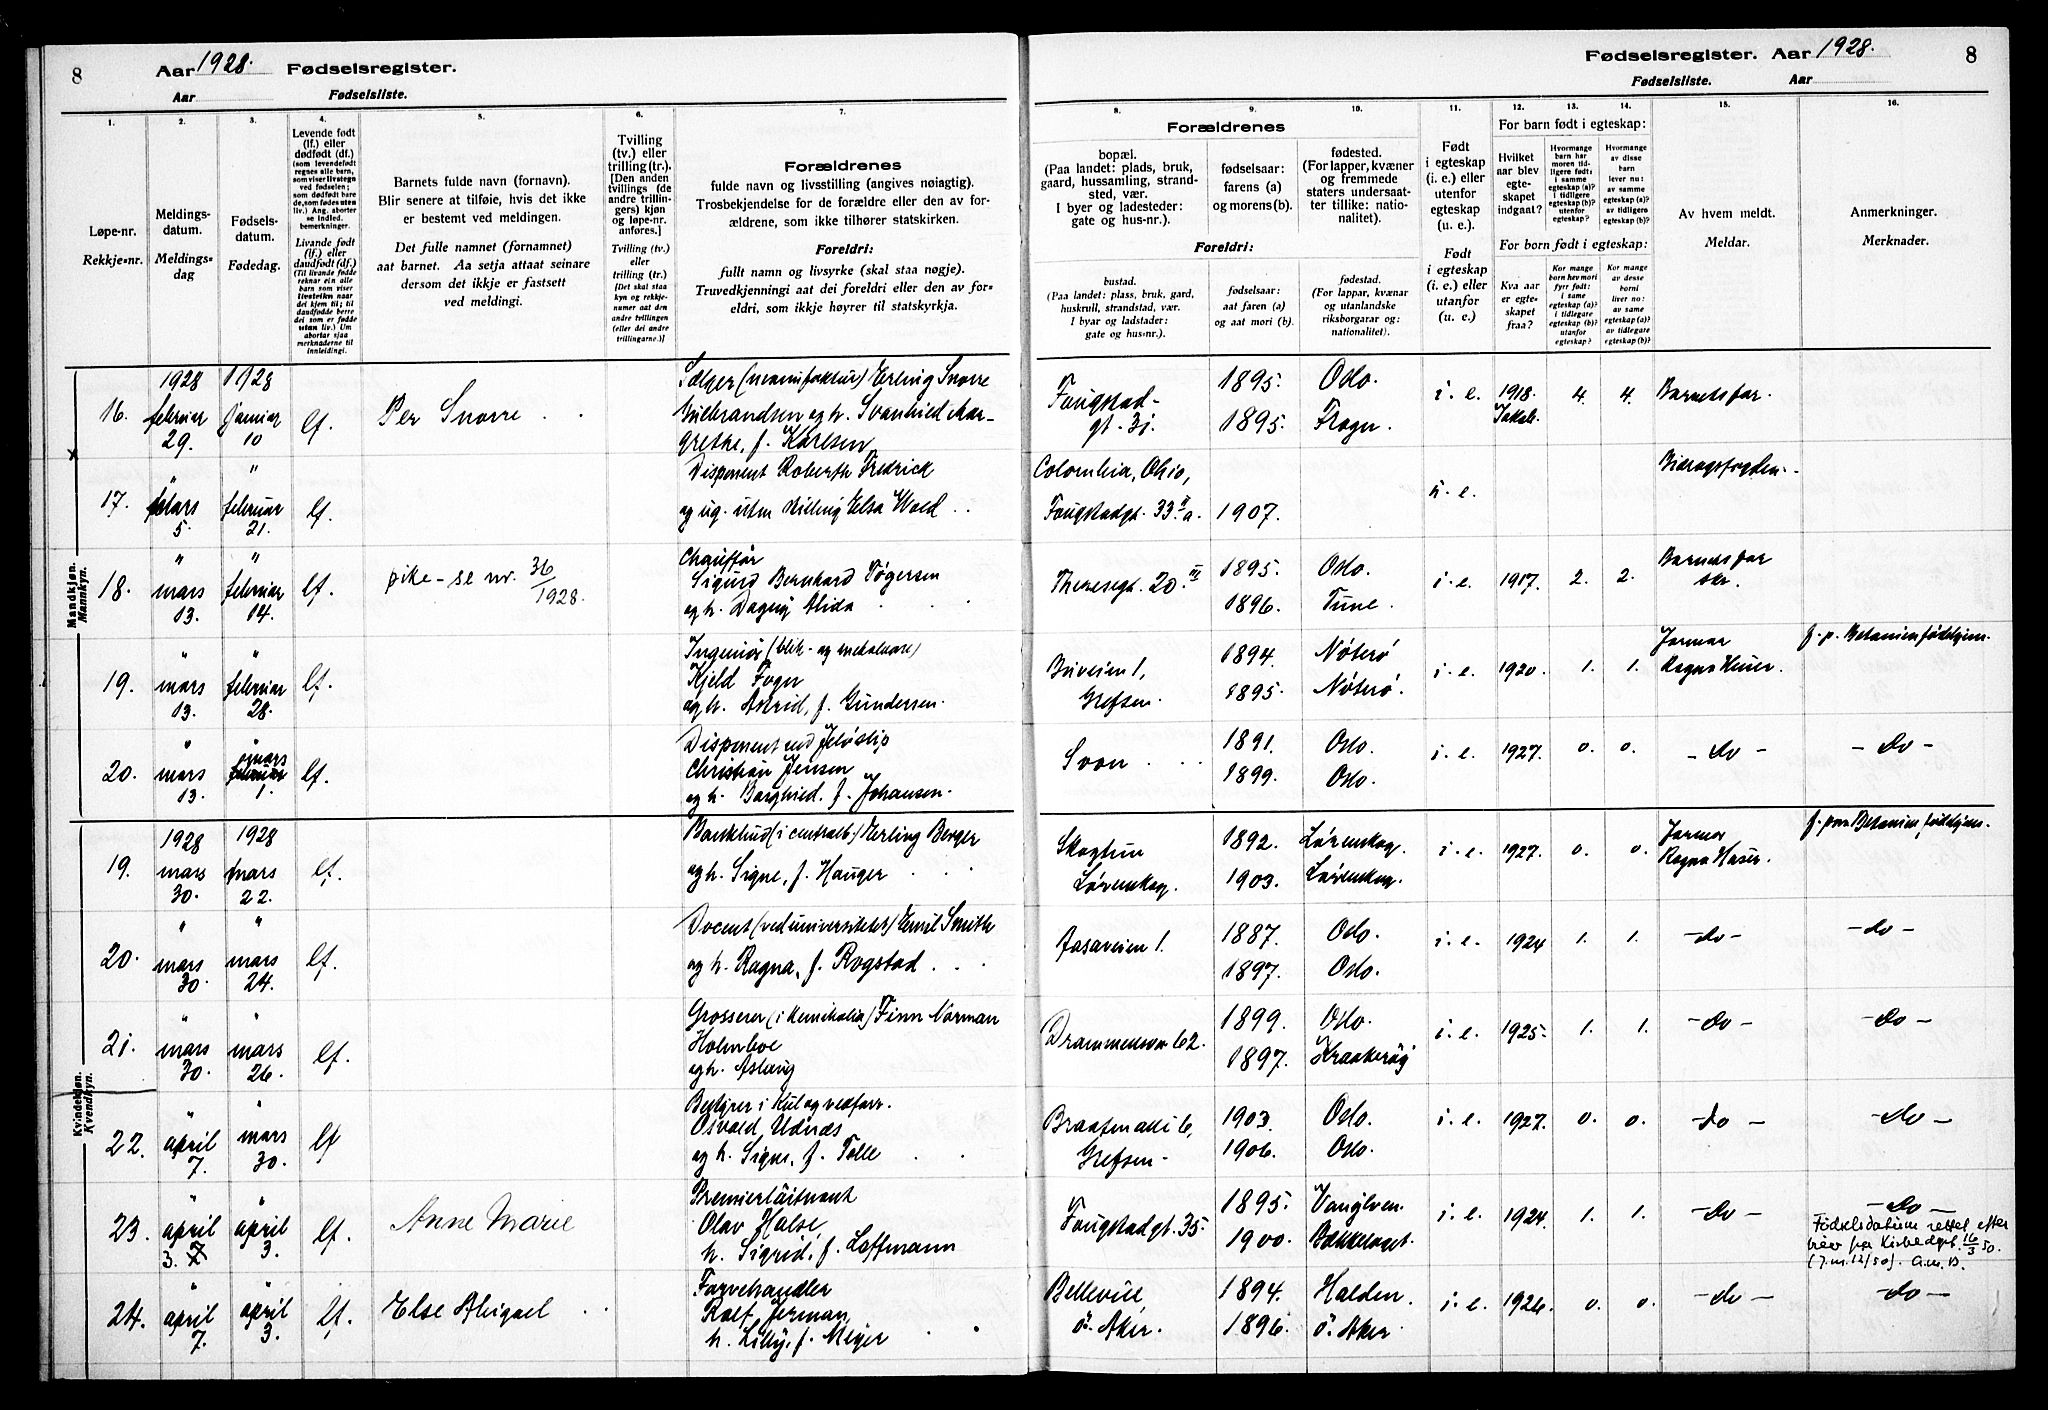 8
Aar 1928. Fødselsregister.
Aar Fødselsliste.
Fødselsregister. Aar 1928.
8
Fødselsliste. Aar
1.
Løpe-nr.
Rekkje-nr.
2.
Meldings-
datum.
Meldings-
dag
3.
Fødsels-
datum.
Fødedag.
4.
Levende født
(lf.) eller
dødfødt (df.)
(som levendefødt
regnes alle barn,
som viser livstegn
ved fødselen;
som dødfødt bare
de, som fødes uten
liv.) Ang. aborter
se indled.
bemerkninger.
Livande født
(lf.) eller
daudfødt (df.)
(Til livande fødde
reknar ein alle
barn som viser
livsteikn naar
dei kjem til; til
daudfødde berre
dei som er fødde
utan liv.) Um
abortar sjaa
merknaderne til
innleidingi.
5.
Barnets fulde navn (fornavn).
Blir senere at tilføie, hvis det ikke
er bestemt ved meldingen.
Det fulle namnet (fornamnet)
aat barnet. Aa setja attaat seinare
dersom det ikkje er fastsett
ved meldingi.
6.
Tvilling
(tv.) eller
trilling (tr.).
[Den anden
tvillings (de
andre trillin-
gers) kjøn
og løpe-nr.
anføres.]
Tvilling (tv.)
eller
trilling (tr.)
[Det skal staa
kyn og rekkje-
numer aat den
andre tvillingen
(eller dei andre
trillingarne.)]
7.
Forældrenes
fulde navn og livsstilling (angives nøiagtig).
Trosbekjendelse for de forældre eller den av for-
ældrene, som ikke tilhører statskirken.
Foreldri:
fullt namn og livsyrke (skal staa nøgje).
Truvedkjenningi aat dei foreldri eller den av for-
eldri, som ikkje høyrer til statskyrkja.
Forældrenes
8.
bopæl.
(Paa landet: plads, bruk,
gaard, hussamling, strand-
sted, vær.
I byer og ladesteder:
gate og hus-nr.).
9.
fødselsaar:
farens (a)
og morens (b).
10.
fødested.
(For lapper, kvæner
og fremmede
staters undersaat-
ter tillike: natio-
nalitet).
Foreldri:
bustad.
(Paa landet: plass, bruk, gard,
huskrull, strandstad, vær.
I byar og ladstader:
gate og hus-nr.).
fødselsaar:
aat faren (a)
og aat mori (b).
fødestad.
(For lappar, kvænar
og utanlandske
riksborgarar og:
nationalitet).
11.
Født
i egteskap
(i. e.) eller
utenfor
egteskap
(u. e.).
Født
i egteskap
(i. e.) eller
utanfor
egteskap
(u. e.).
For barn født i egteskap:
12.
Hvilket
aar blev
egte-
skapet
indgaat?
13.
Hvormange
barn har
moren tid-
ligere født:
i samme
egteskap (a)?
i tidligere
egteskap (b)?
utenfor
egteskap?
14.
Hvormange
av disse
barn
lever nu:
av samme
egteskap (a)?
av tidligere
egteskap (b)?
For born født i egteskap:
Kva aar
er egte-
skapet
fraa?
Kor mange
born hev mori
fyrr født:
i same
egteskap (a)?
i tidlegare
egteskap (b)?
utanfor
egteskap?
Kor mange
av desse
borni
liver no:
av same
egteskap (a)?
av tidlegare
egteskap (b)?
15.
Av hvem meldt.
Meldar.
16.
Anmerkninger.
Merknader.
Mandkjøn.
Mannkyn.
16. 1928 februar 29. 1928 januar 10 lf. Per Snorre
Sælger (manufaktur) Erling Snorre
Hillebrandsen og h. Svanhild Mar-
grethe, f. Karlsen
Fougstad-
gt. 31.
1895. Oslo.
1895. Frogn.
i. e. 1918. Jakob. 4. 4. Barnets far.
17. " mars 5. " februar 21. lf.
Disponent Roberth Fredrick
og ug. uten stilling Elsa Wold
Colombia, Ohio,
Fougstadgt. 33 II a. 1907.
u. e. Bidragsfogden.
18. " mars 13. " februar 14. lf. pike - se nr. 36/1928.
Chauffør
Sigurd Bernhard Tøgersen
og h. Dagny Alida
Theresegt. 20. III
1895. Oslo.
1896. Tune.
i. e. 1917. 2. 2. Barnets far
19. " mars 13. " februar 28. lf.
Ingeniør
Kjeld Foyn
og h. Astrid, f. Gundersen.
Grefsen.
1894. Nøterø
1895. Nøterø.
i. e. 1920. 1. 1. Jormor
f. p. Betanien fødehjem.
20. " mars 13. " mars februar 1. lf.
Disponent
Christian Jensen
og h. Borghild. f. Johansen.
Svon
1891. Oslo.
1899. Oslo.
i. e. 1927. 0. 0. - do - - do -
Kvindekjøn.
Kvendkyn.
19. 1928 mars 30. 1928 mars 22. lf.
Erling Berger
og h. Signe, f. Hauger
Skogtun
Lørenskog.
1892. Lørenskog.
1903. Lørenskog.
i. e. 1927. 0. 0. Jormor
f. paa Betanien fødehjem.
20. " mars 30. " mars 24. lf.
Docent (ved universitetet) Emil Smith
og h. Ragna, f. Rogstad
Aasaveien 1.
1887. Oslo.
1897. Oslo.
i. e. 1924 1. 1. - do - - do -
21. " mars 30. " mars 26. lf.
Grosserer (i kemikalia) Finn Norman
Holmboe
og h. Aslaug
Drammensvn 62.
1899. Oslo.
1897. Kraakerøy
i. e. 1925. 1. 1. - do - - do -
22. " april 7. " mars 30. lf
Bestyrer i kul og vedforr.
Osvald Udnæs
og h. Signe, f. Tolle
Grefsen-
1903. Oslo.
1906. Oslo.
i. e. 1927. 0. 0. - do - - do -
23. " april 3. 7 " april 3. lf. Anne Marie
Premierløitnant
Olav Halse,
h. Sigrid, f. Loffmann
Fougstadgt. 35.
1895. Vanylven.
1900. Bækkelaget.
i. e. 1924. 1. 1. - do - - do -
Fødselsdatum rettet efter
brev fra Kirkedept. 16/3 50.
(J.nr. 12/50). A.M.B.
24. " april 7. " april 3. lf. Else Abigael
Farvehandler
Rolf Jerman,
h. Lilly, f. Meyer
Bellevue,
Ö. Aker.
1894. Halden.
1896. Ö. Aker
i. e. 1926. 0. 0. - do - - do -